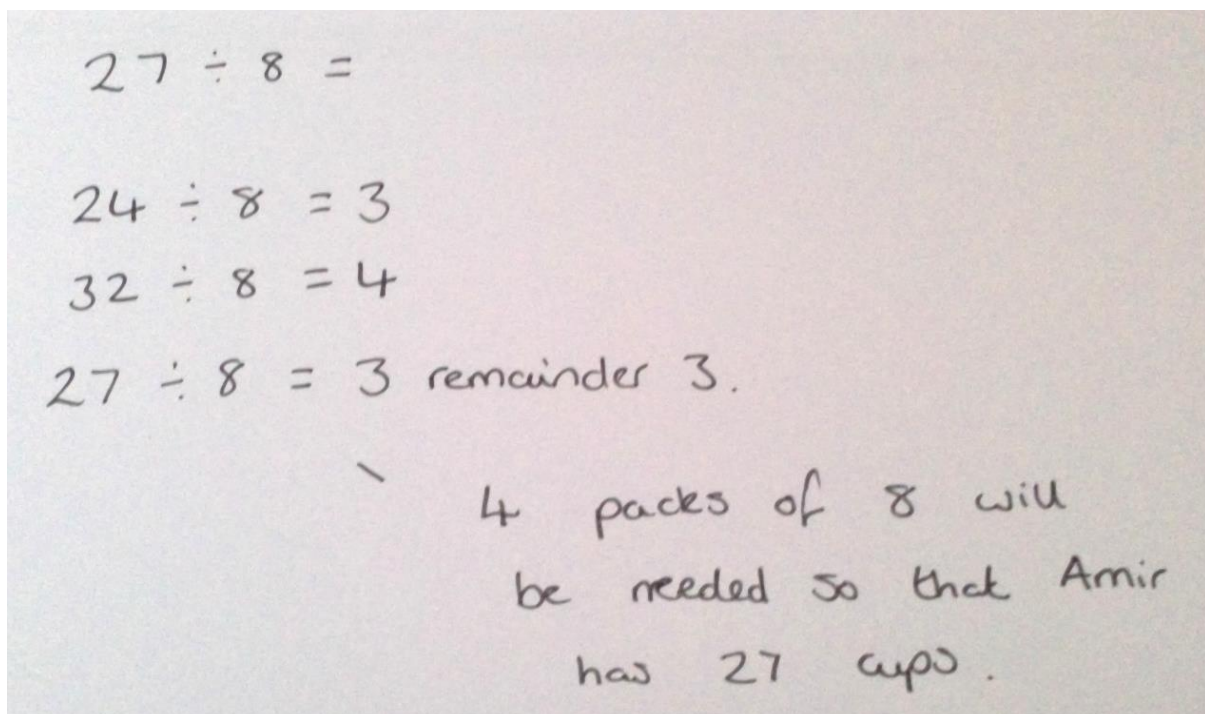 27 ÷ 8 =
24 ÷ 8 = 3
32 ÷ 8 = 4
27 ÷ 8 = 3 remainder 3.
4 packs of 8 will
be needed so that Amir
has 27 cups.